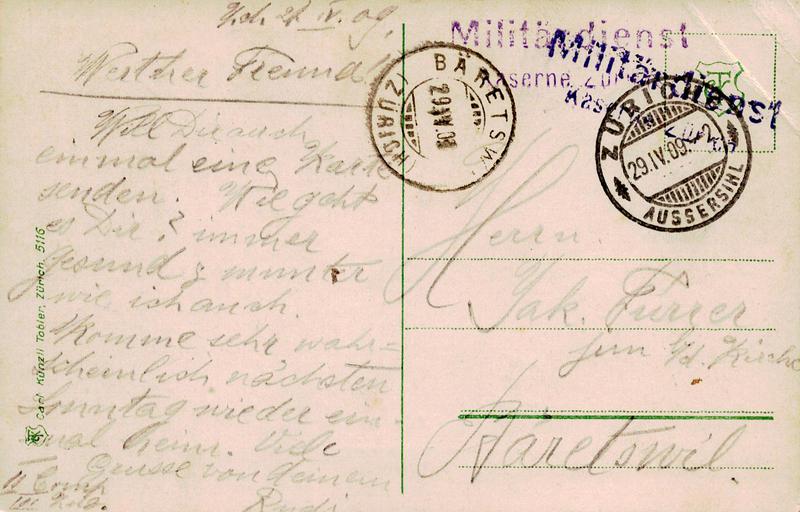 Zch. 28 IV. 09.
Werther Freund!
Will Dir auch
einmal eine Karte
senden. Wie geht
es Dir? immer
gesund & munter
wie ich auch.
Komme sehr wahr=
scheinlich nächsten
Sonntag wieder ein-
mal heim. Viele
Grüsse von deinem
Rudi
II Comp
III Zug.
Carl Künzli Tobler, Zürich, 5116
Militärdienst
Kaserne Zürich
Militärdienst
Kaserne Zürich
BÄRETSWIL
(ZÜRICH)
29.IV.09
ZÜRICH
29.IV.09.
AUSSERSIHL
Herrn
Jak. Furrer
jun z/d. Kirche
Bäretswil